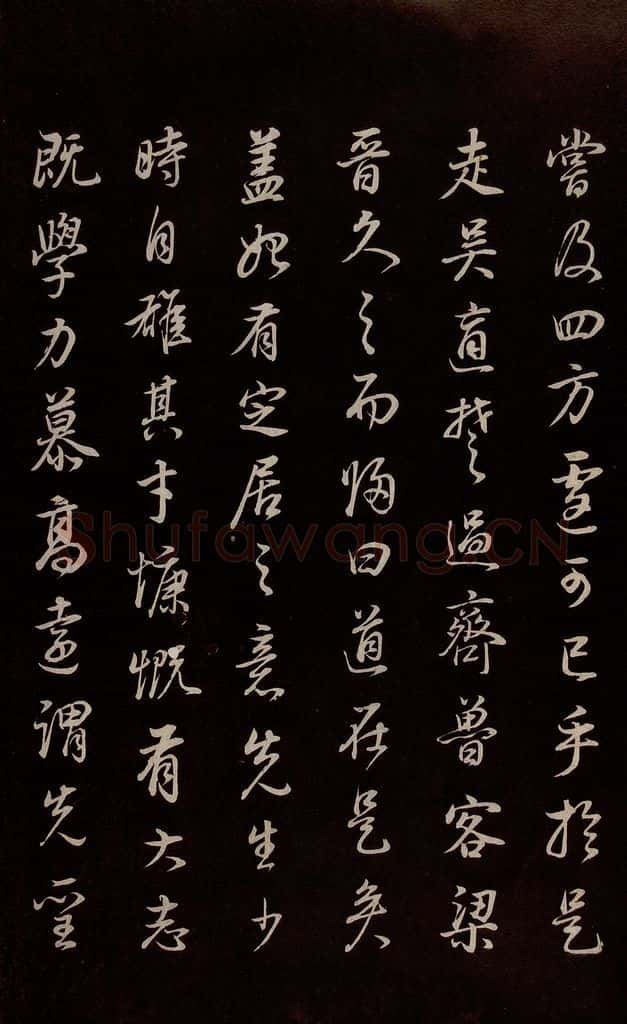 嘗及四方遽可已乎於是
走吴適楚過齊魯客梁
晉久之而归曰道在是矣
盖始有定居之意先生少
時自雄其才慷慨有大志
既學力慕高遠謂先聖
Shufawang.CN